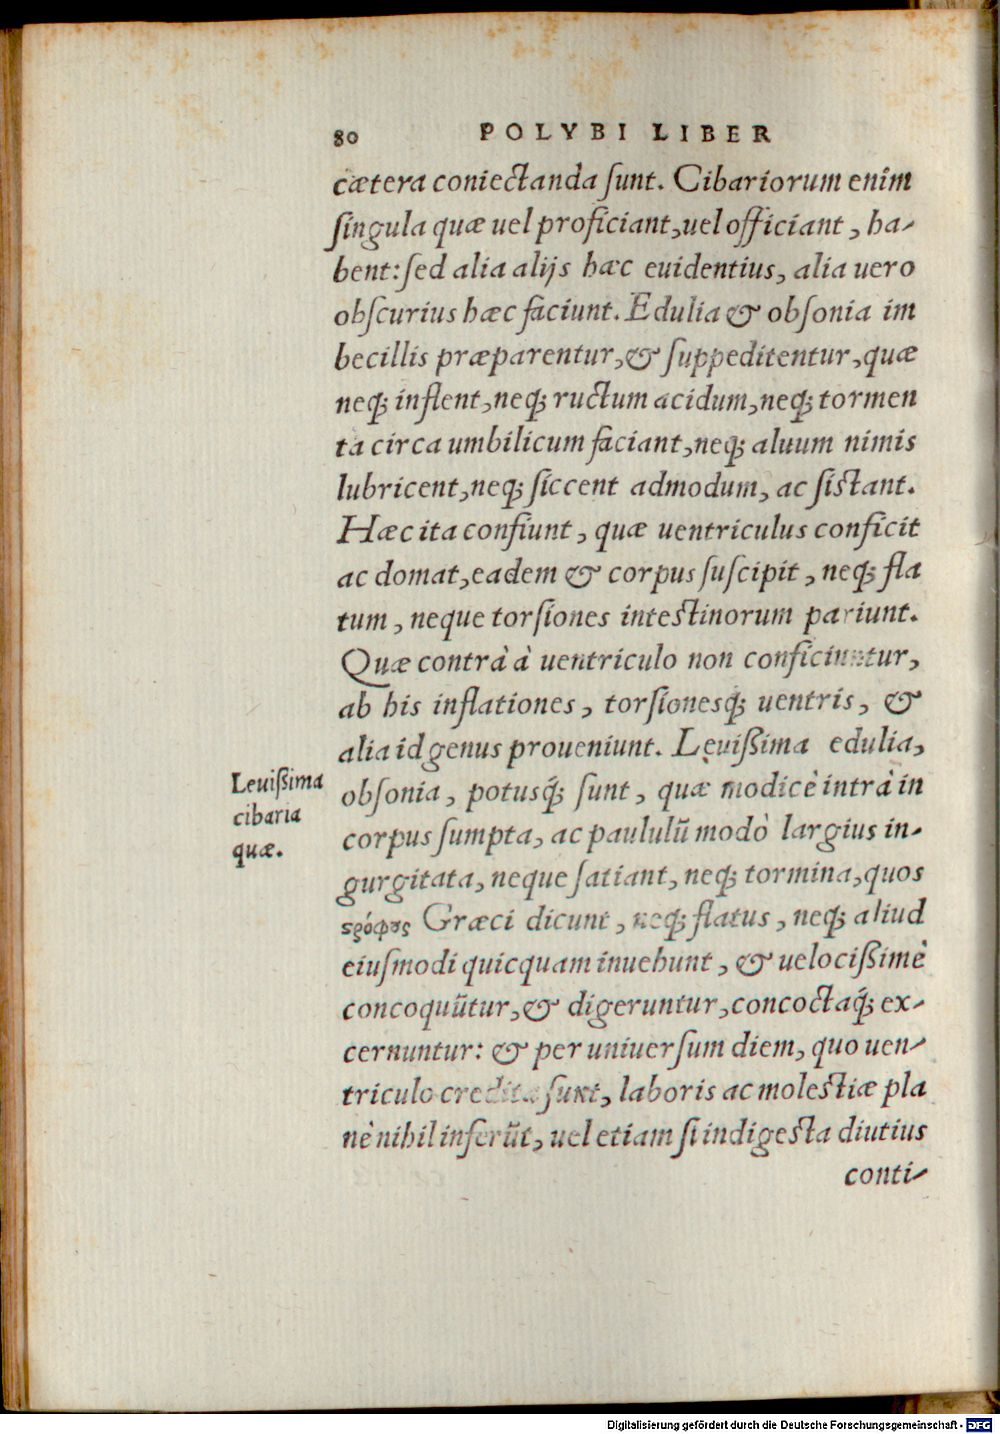 80 POLYBI LIBER
cætera coniectanda ſunt. Cibariorum enim
ſingula quæ uel proficiant, uel officiant, ha-
bent: ſed alia alijs hæc euidentius, alia uero
obſcurius hæc faciunt. Edulia & obſonia im
becillis præparentur, & ſuppeditentur, quæ
neq; inflent, neq; ructum acidum, neq; tormen
ta circa umbilicum faciant, neq; aluum nimis
lubricent, neq; ſiccent admodum, ac ſiſtant.
Hæc ita confiunt, quæ uentriculus conficit
ac domat, eadem & corpus ſuſcipit, neq; fla
tum, neque torſiones inteſtinorum pariunt.
Quæ contrà à uentriculo non conficiuntur,
ab his inflationes, torſionesq́; uentris, &
alia id genus proueniunt. Lęuißima edulia,
obſonia, potusq́; ſunt, quæ modicè intrà in
corpus ſumpta, ac paululũ modò largius in-
gurgitata, neque ſatiant, neq; tormina, quos
ϛρόφȣς Græci dicunt, neq; flatus, neq; aliud
eiuſmodi quicquam inuehunt, & uelocißimè
concoquũtur, & digeruntur, concoctaq́; ex-
cernuntur: & per uniuerſum diem, quo uen-
triculo credita ſunt, laboris ac moleſtiæ pla
nè nihil inferũt, uel etiam ſi indigeſta diutius
conti-
Leuißima
cibaria
quæ.
Digitalisierung gefördert durch die Deutsche Forschungsgemeinschaft - DFG